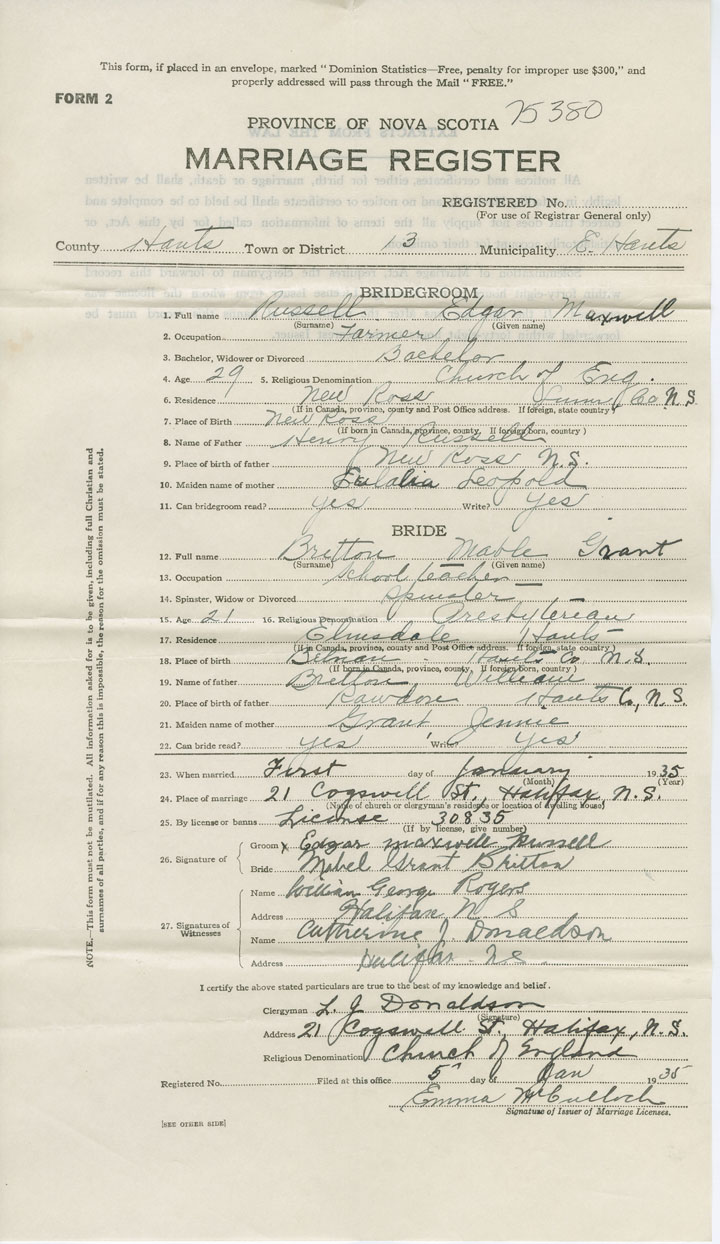 This form, if placed in an envelope, marked "Dominion Statistics—Free, penalty for improper use $300," and
properly addressed will pass through the Mail "FREE."
FORM 2
75380
PROVINCE OF NOVA SCOTIA
MARRIAGE REGISTER
REGISTERED No.
(For use of Registrar General only)
County Hants Town or District 13 Municipality E. Hants
BRIDEGROOM
1. Full name Russell Edgar Maxwell
(Surname) (Given name)
2. Occupation Farmer
3. Bachelor, Widower or Divorced Bachelor
4. Age 29 5. Religious Denomination Church of Eng.
6. Residence New Ross Lunn Co N.S.
(If in Canada, province, county and Post Office address. If foreign, state country)
7. Place of Birth New Ross
(If born in Canada, province, county. If foreign born, country)
8. Name of Father Henry Russell
9. Place of birth of father New Ross N.S.
10. Maiden name of mother Eulalia Leopold
11. Can bridegroom read? yes Write? Yes
BRIDE
12. Full name Britton Mable Grant
(Surname) (Given name)
13. Occupation School teacher
14. Spinster, Widow or Divorced Spinster
15. Age 21 16. Religious Denomination Presbyterian
17. Residence Elmsdale Hants
(If in Canada, province, county and Post Office address. If foreign, state country)
18. Place of birth Hants Co N.S.
(If born in Canada, province, county. If foreign born, country)
19. Name of father Britton William
20. Place of birth of father Rawdon Hants Co, N.S.
21. Maiden name of mother Grant Jennie
22. Can bride read? yes Write yes
23. When married First day of January 1935
(Month) (Year)
24. Place of marriage 21 Cogswell St., Halifax, N.S.
(Name of church or clergyman's residence or location of dwelling house)
25. By license or banns License 30835
(If by license, give number)
26. Signature of
Groom x Edgar maxwell Russell
Bride Mabel Grant Britton
27. Signatures of Witnesses
Name William George Rogers
Address Halifax N S
Name Catherine J. Donaldson
Address Halifax. N.S.
I certify the above stated particulars are true to the best of my knowledge and belief.
Clergyman L. J. Donaldson
(Signature)
Address 21 Cogswell St, Halifax, N.S.
Religious Denomination Church of England
Registered No. Filed at this office 5 day of Jan 1935
Emma McCulloch
Signature of Issuer of Marriage Licenses.
[SEE OTHER SIDE]
NOTE.—This form must not be mutilated. All information asked for is to be given, including full Christian and
surnames of all parties, and if for any reason this is impossible, the reason for the omission must be stated.